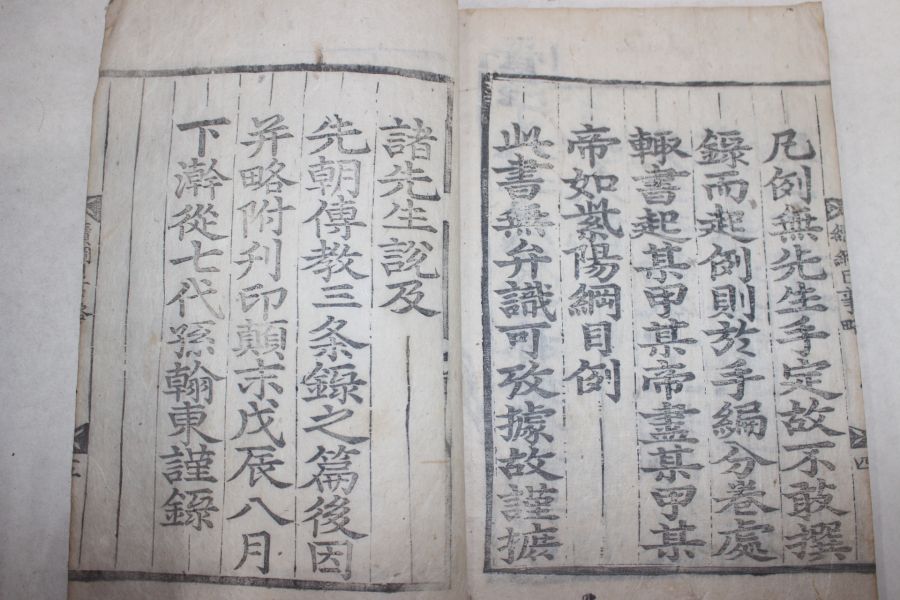 凡例無先生手定故不敢撰
錄而起例則於手編分卷處
輙書起某甲某帝盡某甲某
帝如紫陽綱目例
此書無弁識可攷據故謹摭
諸先生說及
先朝傳敎三条錄之篇後因
并略附刋印顛末戊辰八月
下澣從七代孫翰東謹錄